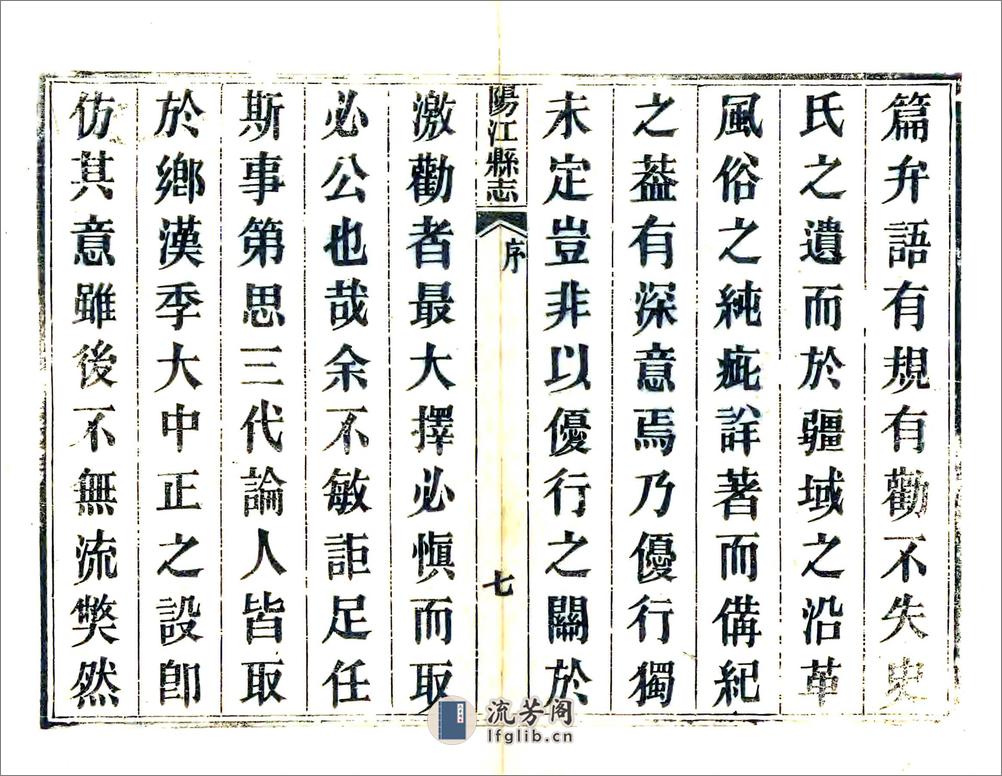 篇弁語有規有勸不失史
氏之遺而於疆域之沿革
風俗之純疵詳著而備紀
之葢有深意焉乃優行獨
未定豈非以優行之關於
陽江縣志
序
七
激勸者最大擇必愼而取
必公也哉余不敏詎足任
斯事第思三代論人皆取
於鄉漢季大中正之設卽
仿其意雖後不無流獘然
流芳阁
lfglib.cn